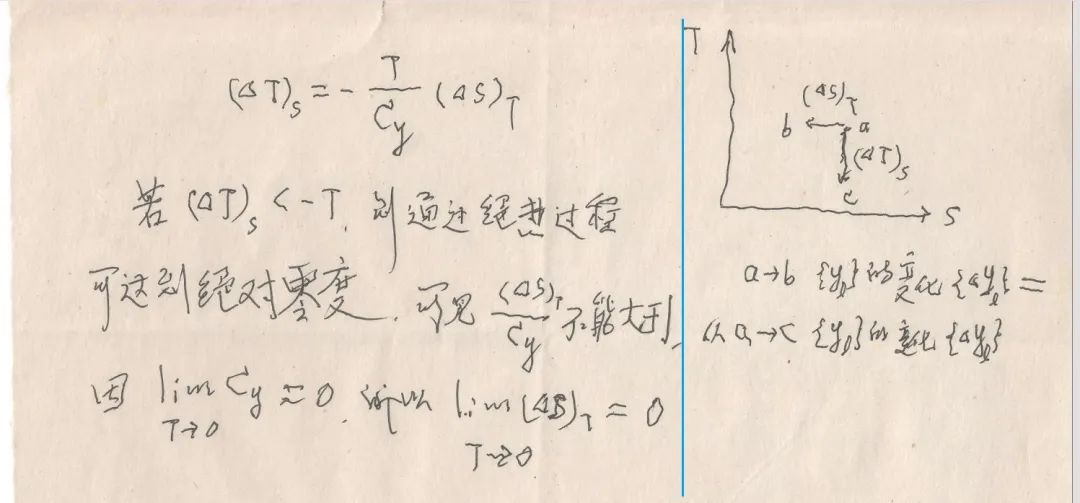 (ΔT)_S = - T/C_y (ΔS)_T
若 (ΔT)_S < -T, 则通过绝热过程
可达到绝对零度, 可见 (ΔS)_T/C_y 不能大于1,
因 lim_{T→0} C_y = 0, 所以 lim_{T→0} (ΔS)_T = 0
T
(ΔS)_T
b ← a
(ΔT)_S
c
S
a→b {y_l} 的变化 {Δy_l} =
从 a→c {y_l} 的变化 {Δy_l}